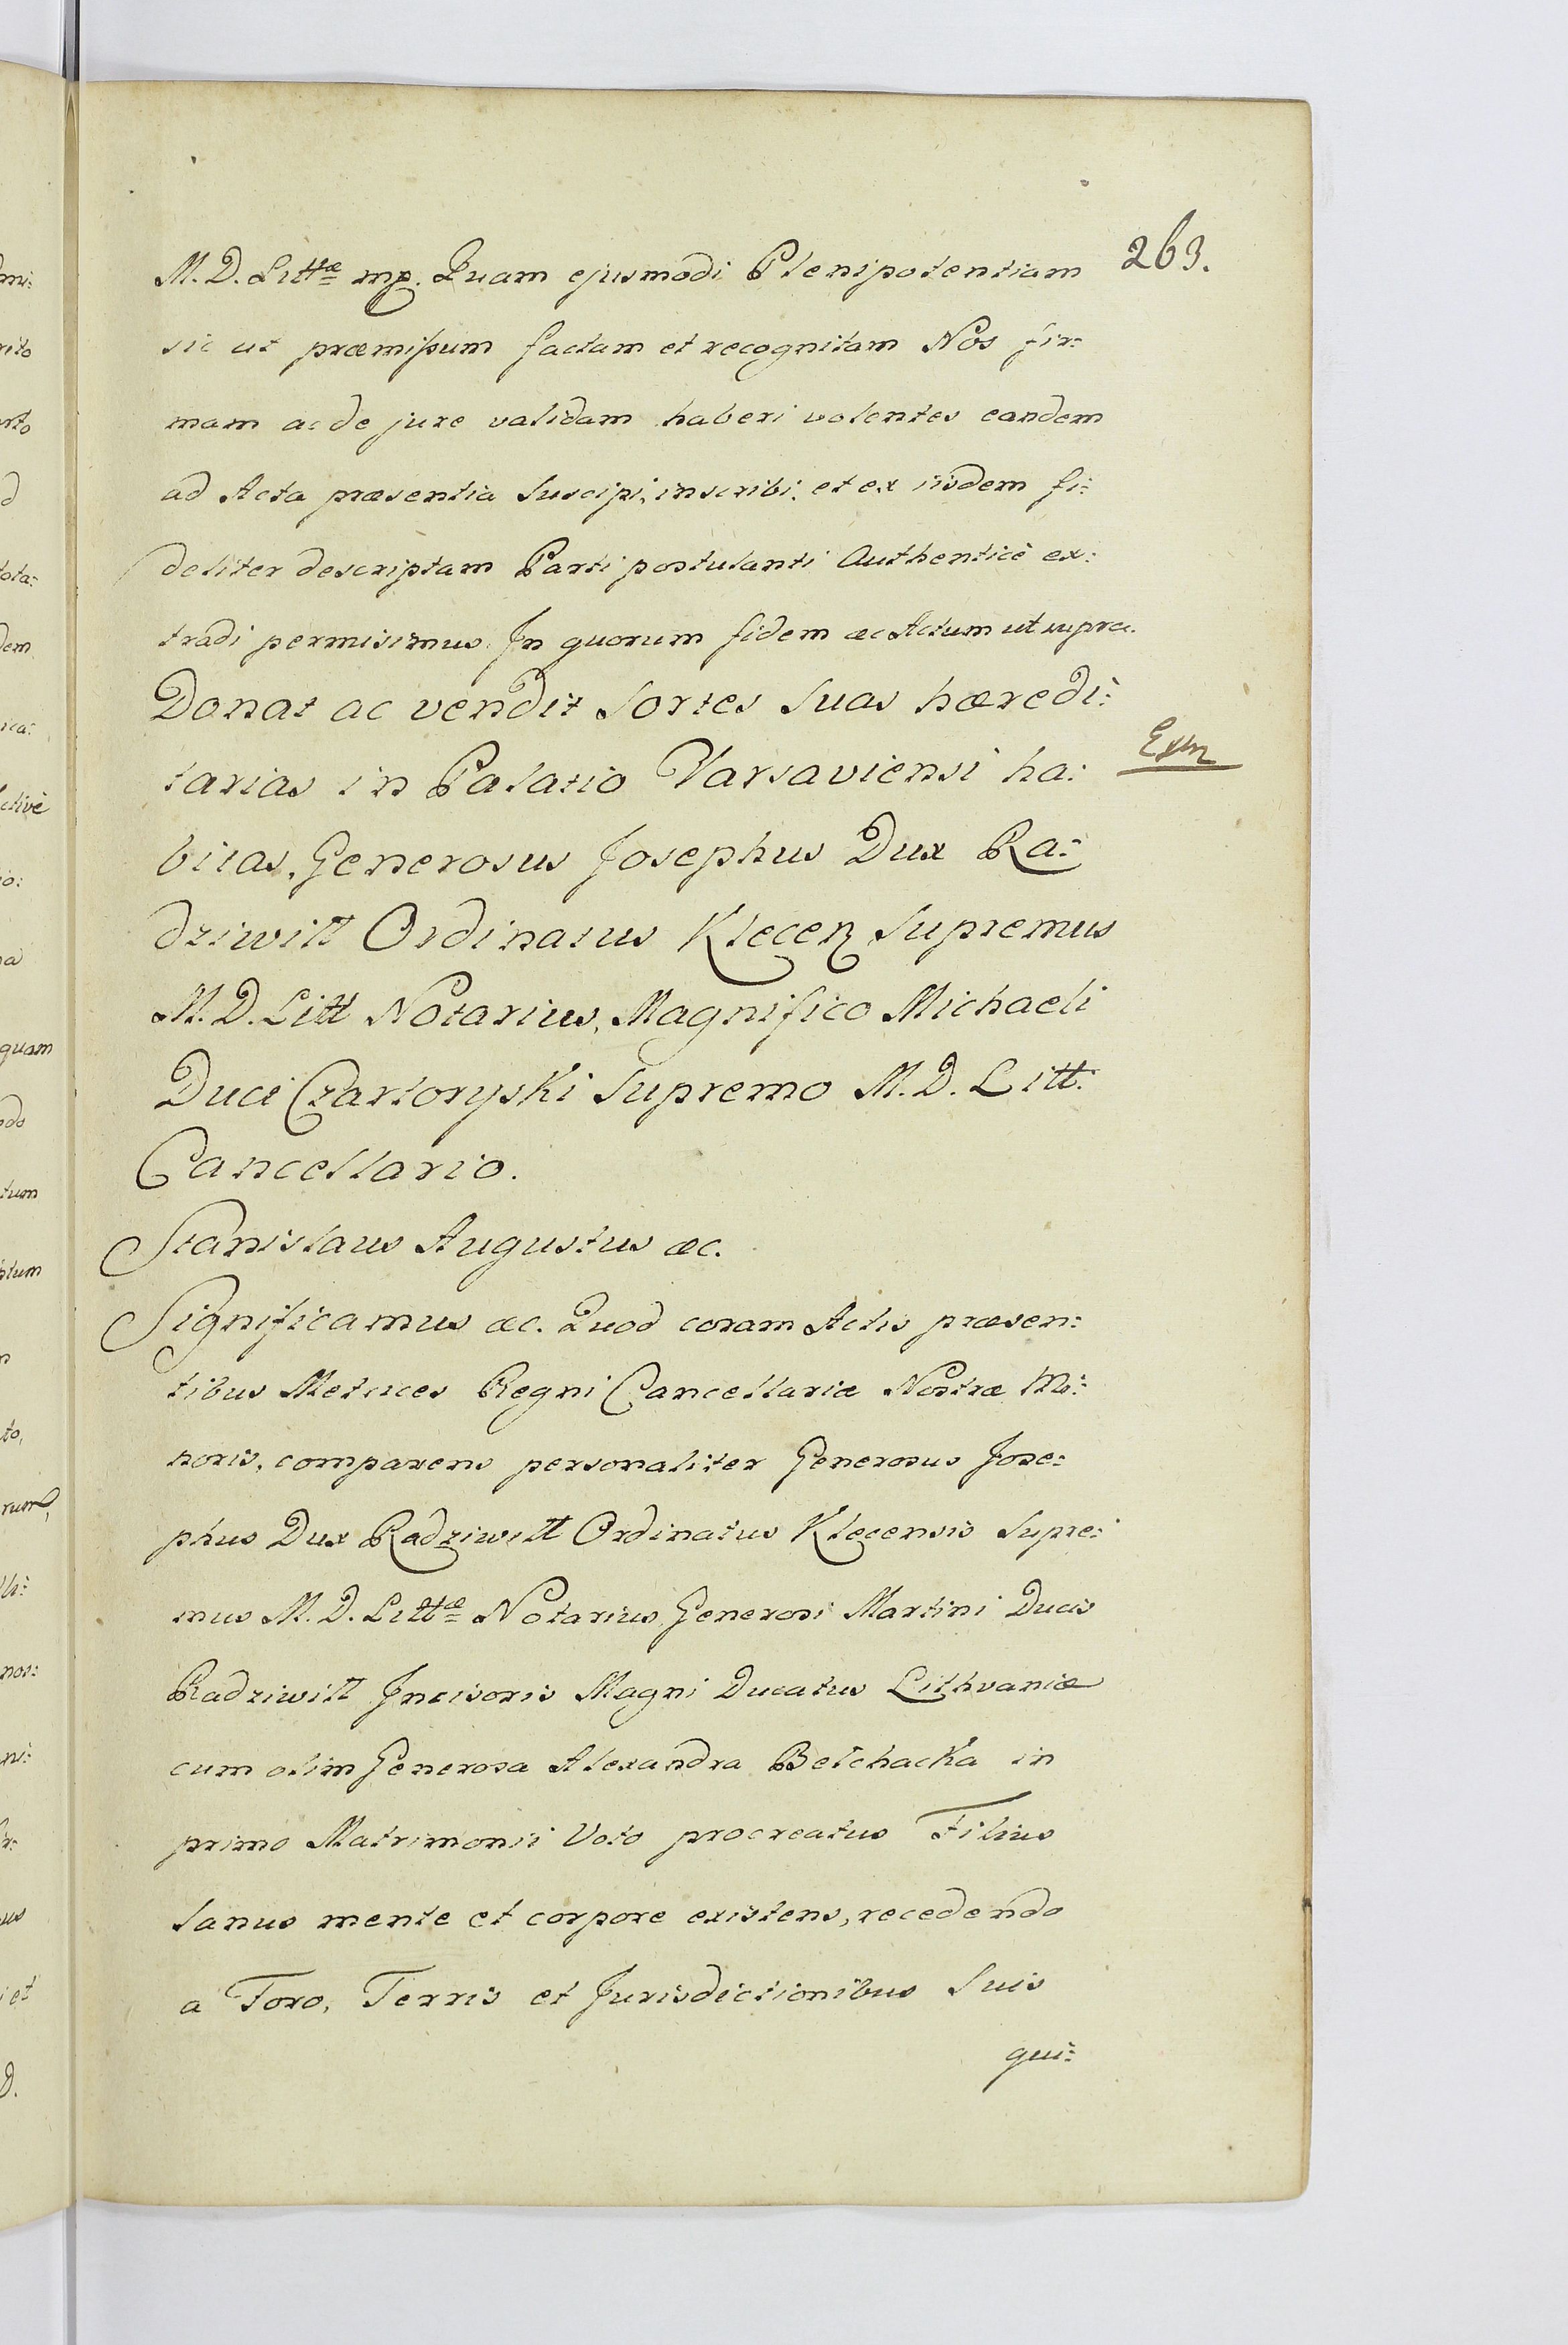 263.
M. D. Littæ mp. Quam ejusmodi Plenipotentiam
sic ut præmissum factam et recognitam Nos fir:
mam ac de jure validam haberi volentes eandem
ad Acta præsentia suscipi, inscribi, et ex iisdem fi:
deliter descriptam Parti postulanti Authenticè ex:
tradi permisimus. In quorum fidem æc Actum ut supra.
Donat ac vendit Sortes Suas hæredi:
tarias in Palatio Varsaviensi ha:
Exm
bitas, Generosus Josephus Dux Ra:
dziwill Ordinatus Klecen Supremus
M. D. Litt Notarius, Magnifico Michaeli
Duci Czartoryski Supremo M. D. Litt:
Cancellario.
Stanislaus Augustus æc.
Significamus æc. Quod coram Actis præsen:
tibus Metrices Regni Cancellariæ Nostræ Mi:
noris, comparens personaliter Generosus Jose:
phus Dux Radziwill Ordinatus Klecensis Supre:
mus M. D. Littæ Notarius, Generosi Martini Ducis
Radziwill Incisoris Magni Ducatus Lithvaniæ
cum olim Generosa Alexandra Bełchacka in
primo Matrimonii Voto procreatus Filius
sanus mente et corpore existens, recedendo
a Foro, Terris et Jurisdictionibus Suis
qui: